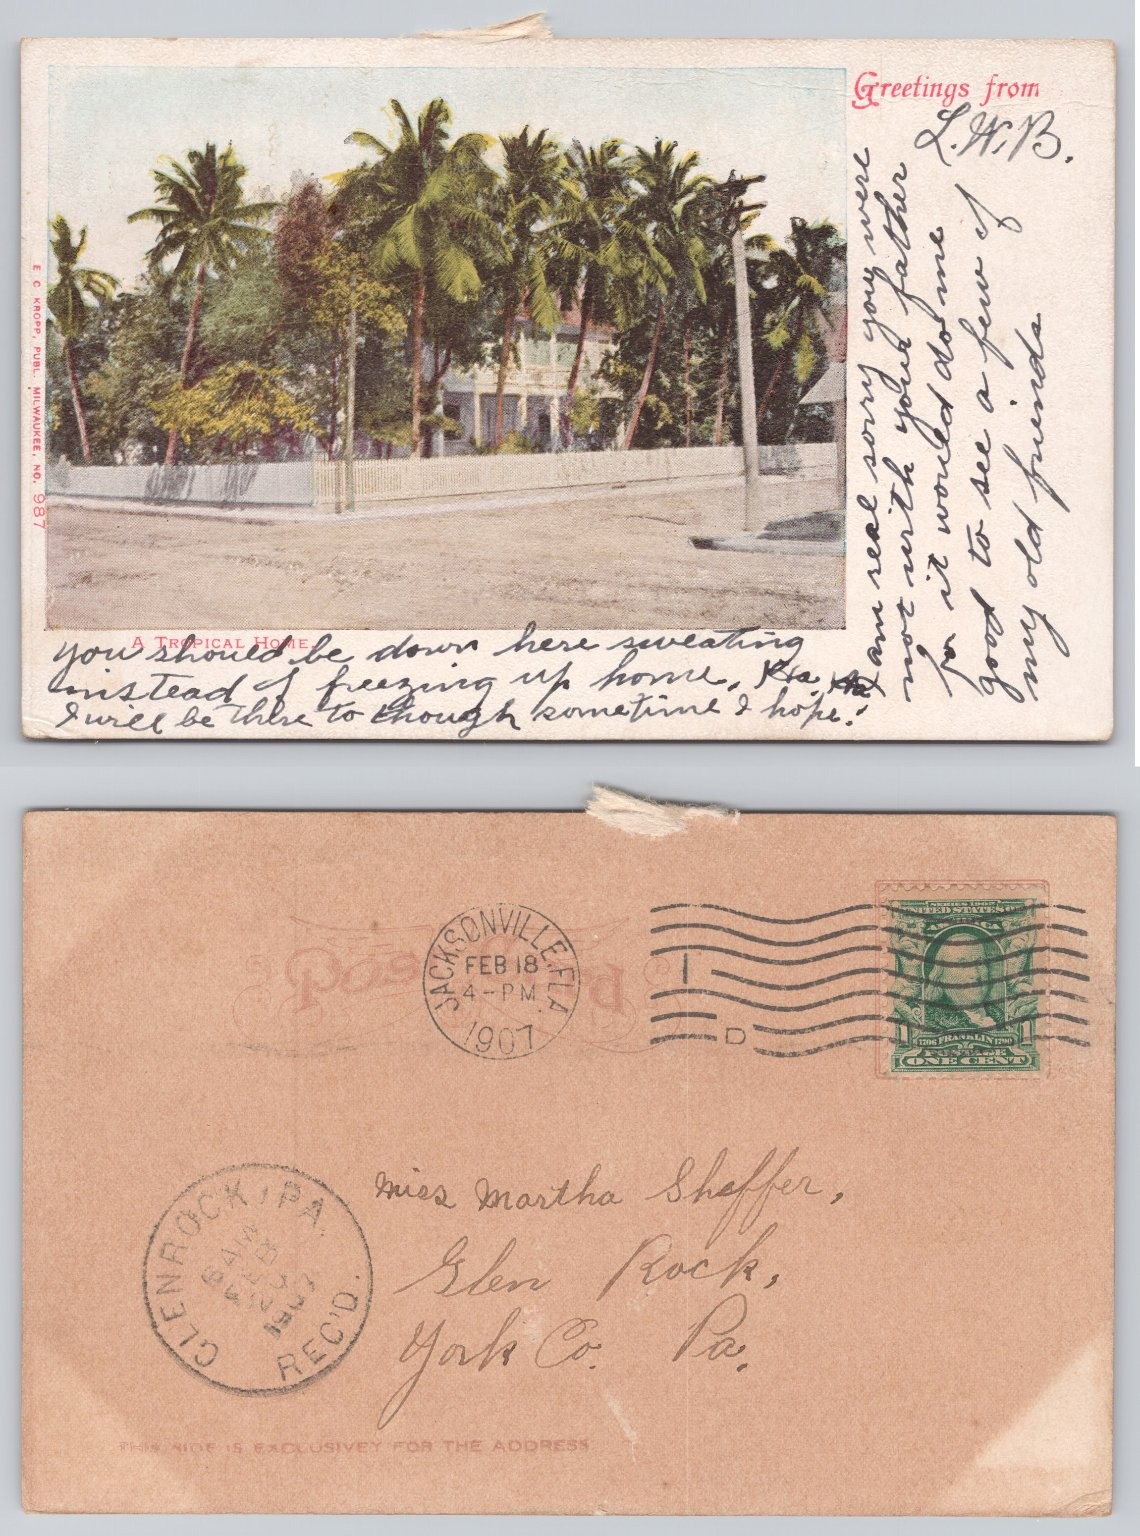 Greetings from
L.W.B.
I am real sorry you were
not with your father
for it would do me
good to see a few of
my old friends
E. C. KROPP, PUBL. MILWAUKEE, NO. 987
A TROPICAL HOME
You should be down here sweating
instead of freezing up home.
I will be there to though sometime I hope!
JACKSONVILLE, FLA.
FEB 18
4-PM
1907
1
D
SERIES 1902
UNITED STATES OF
AMERICA
1706 FRANKLIN 1790
POSTAGE
1 ONE CENT 1
Miss Martha Sheffer,
Glen Rock,
York Co. Pa.
GLENROCK, PA.
1907
REC'D.
THIS SIDE IS EXCLUSIVEY FOR THE ADDRESS